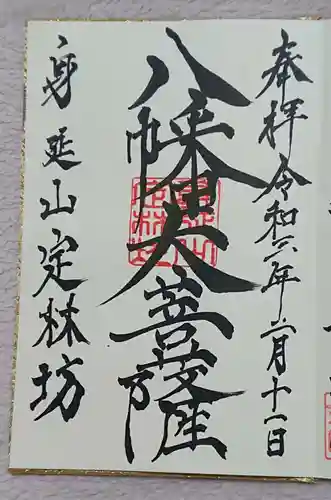 奉拝 令和六年六月十一日
八幡大菩薩
身延山定林坊